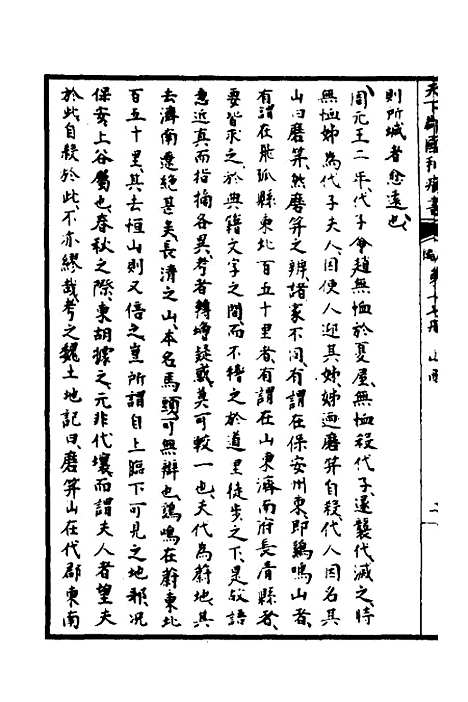 天下郡國利病書 原編第十七冊 山西
則所城者愈遠也
周元王二年代子會趙無恤於夏屋無恤殺代子遂襲代滅之時
無恤姊為代子夫人因使人迎其姊姊迺磨笄自殺代人因名其
山曰磨笄然磨笄之辨諸家不同有謂在保安州東即鷄鳴山者
有謂在飛狐縣東北百五十里者有謂在山東濟南府長清縣者
要皆求之於典籍文字之間而不稽之於道里徒步之下是故語
意近真而指摘各異考者轉增疑惑莫可較一也夫代為蔚地其
去濟南遼絕甚矣長清之山本名馬頭可無辯也鷄鳴在蔚東北
百五十里其去恒山則又倍之豈所謂自上臨下可見之地邪况
保安上谷屬也春秋之際東胡據之元非代壤而謂夫人者望夫
於此自殺於此不亦繆哉考之魏土地記曰磨笄山在代郡東南